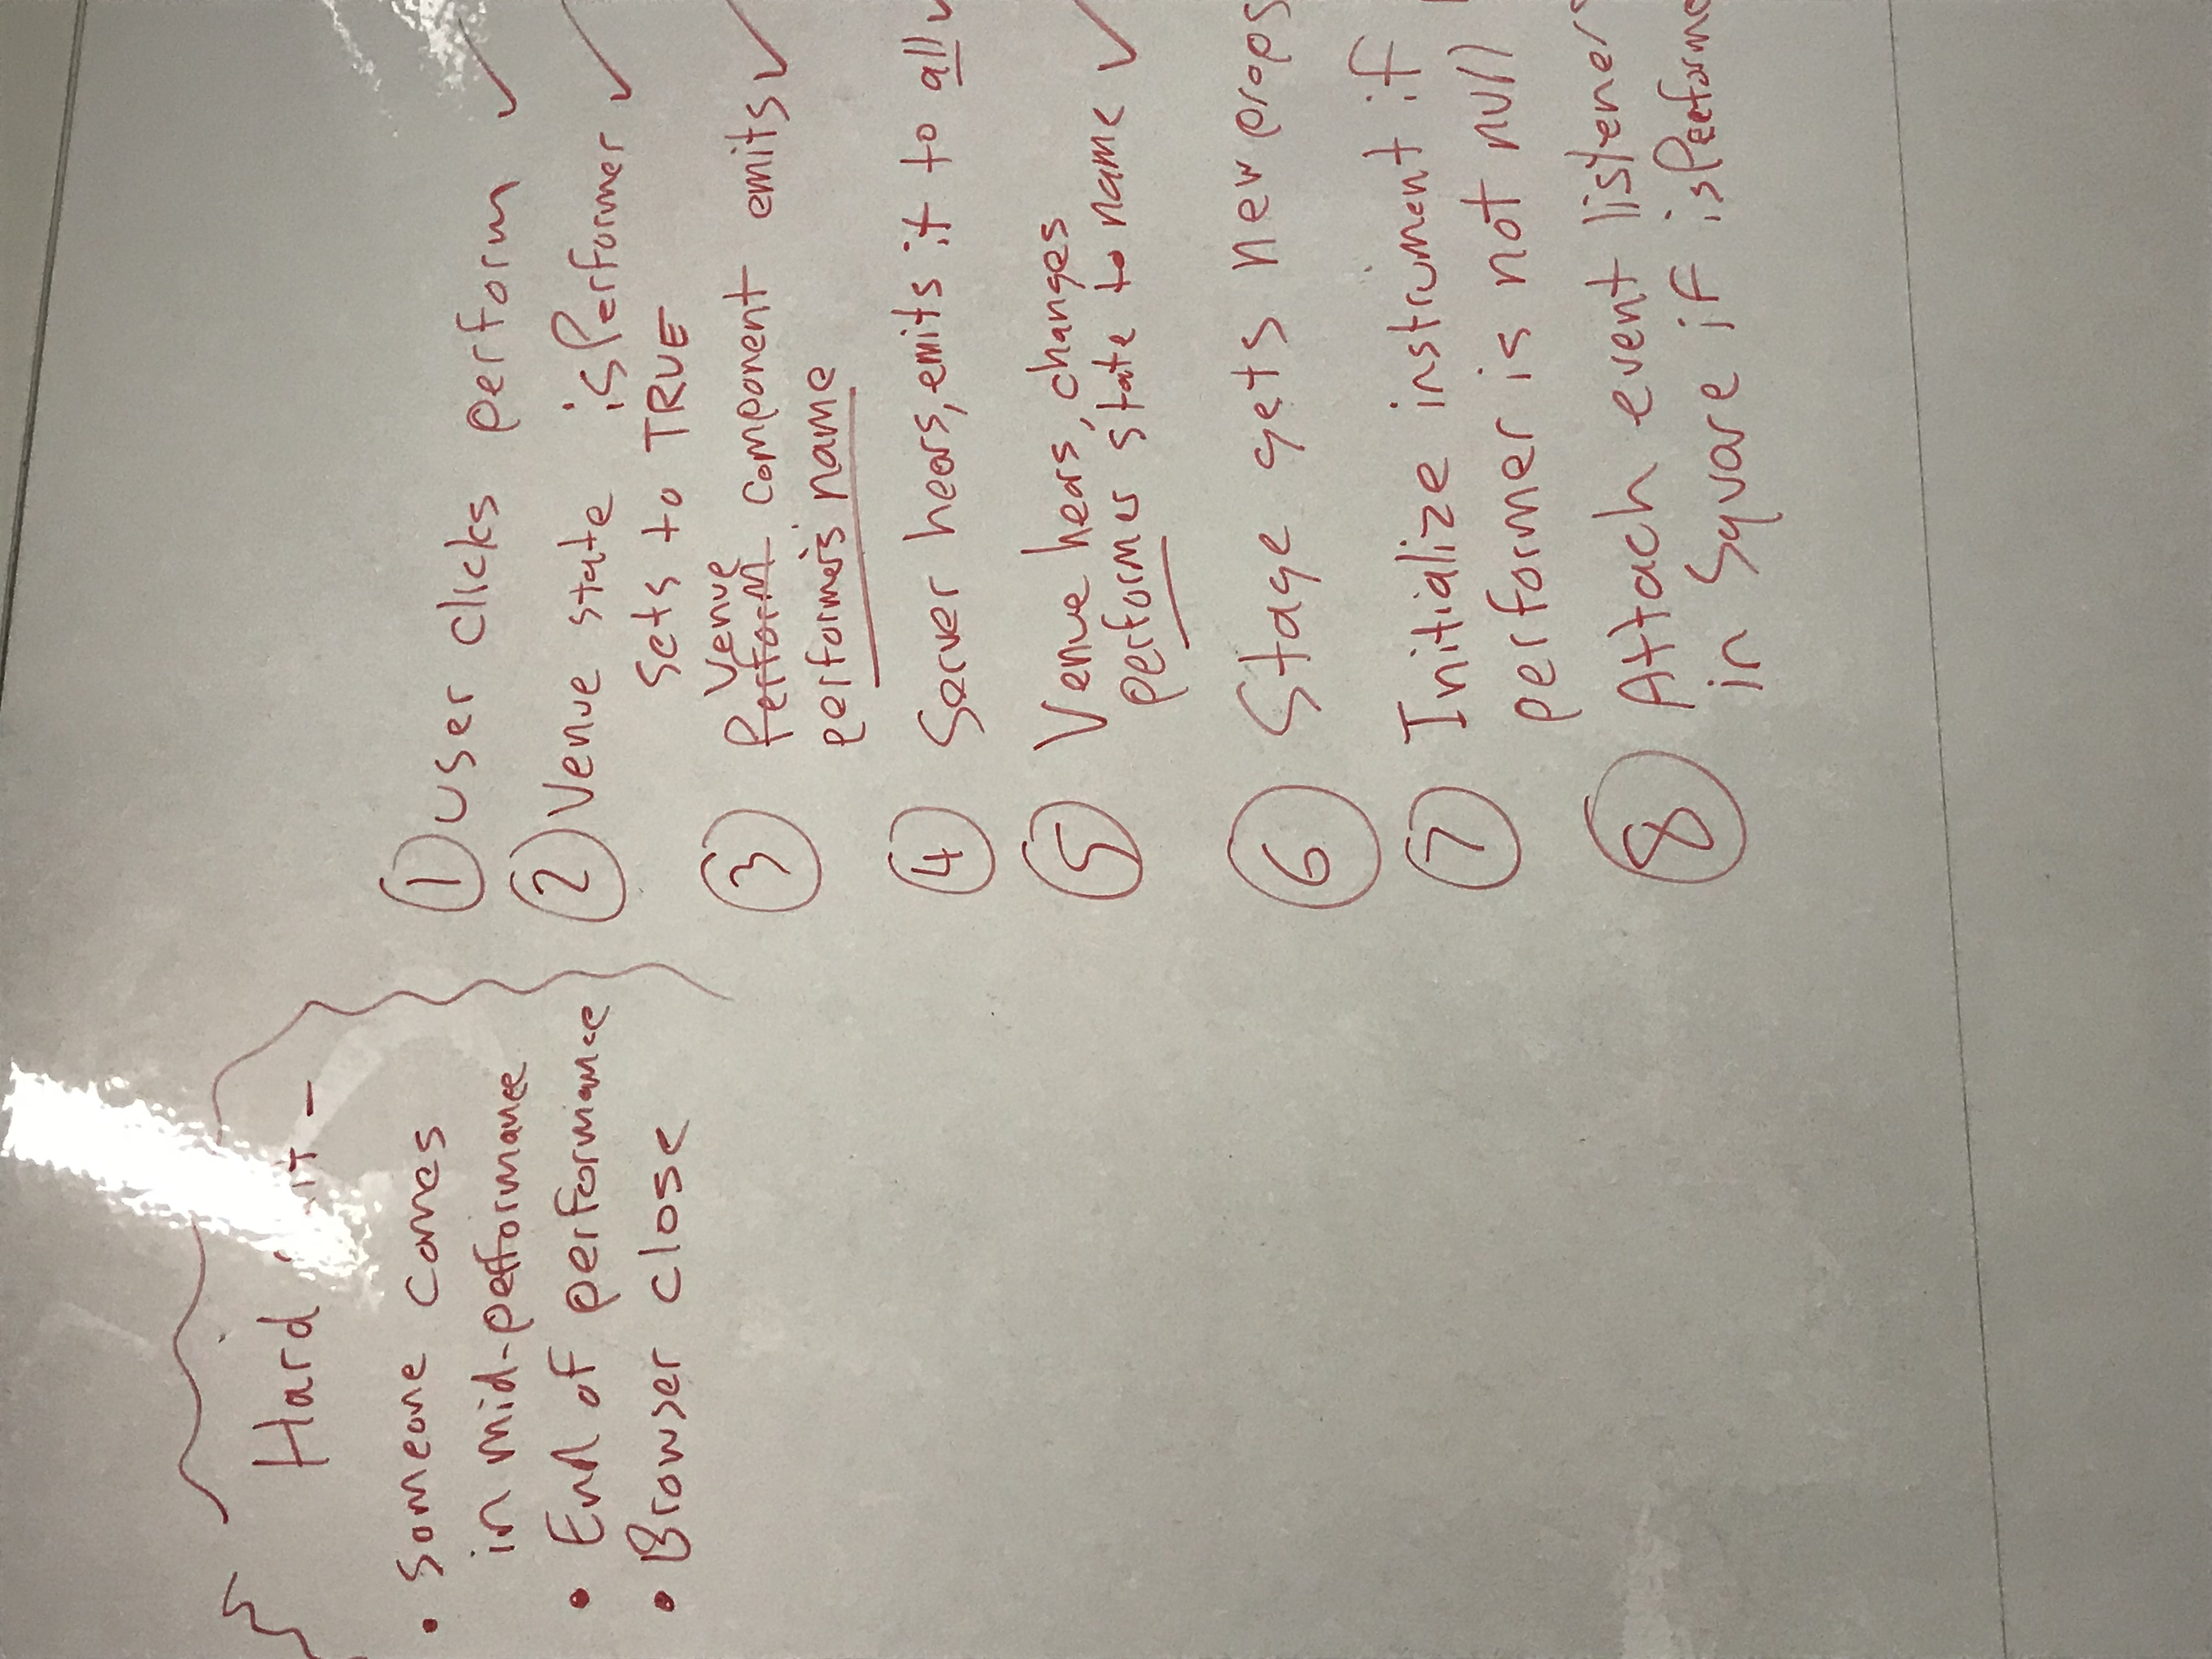 Hard
• Someone comes
in mid-performance
• End of performance
• Browser close
① User clicks perform ✓
② Venue state isPerformer ✓
sets to TRUE
Venue
③ Perform component emits ✓
performer's name
④ Server hears, emits it to all ✓
⑤ Venue hears, changes
performer state to name ✓
⑥ Stage gets new props
⑦ Initialize instrument if
performer is not null
⑧ Attach event listeners
in Square if isPerforme